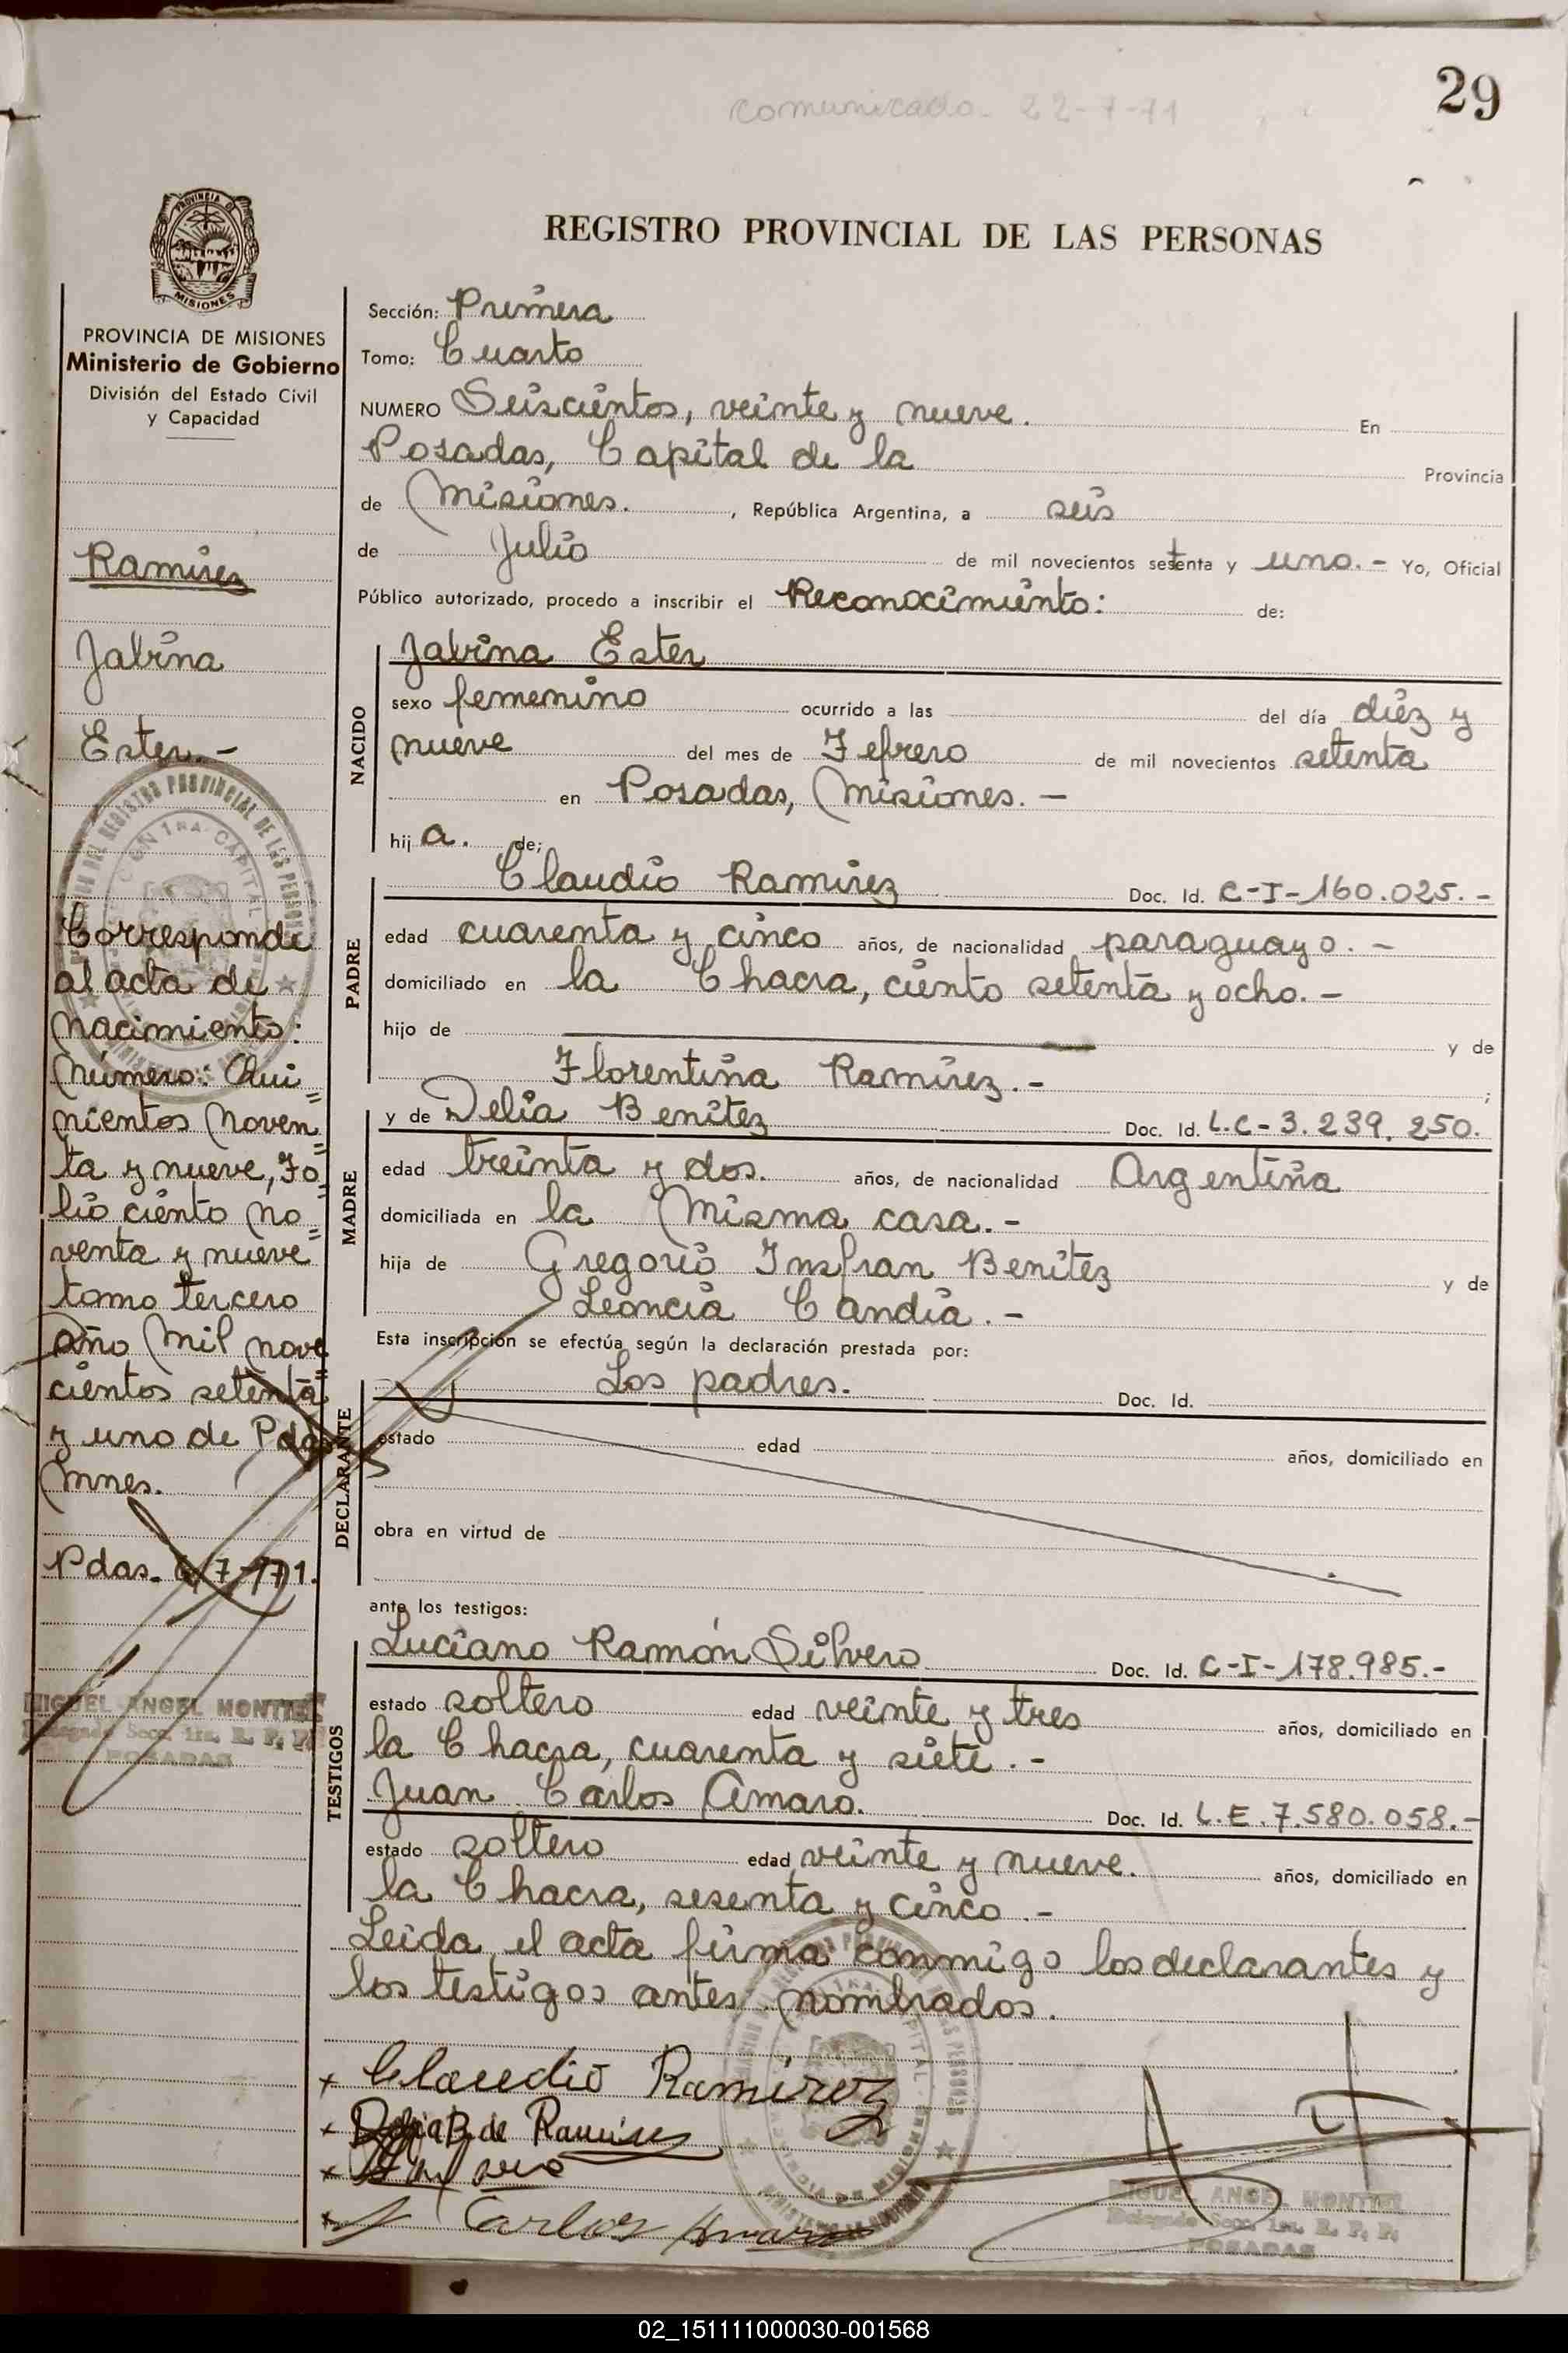 29
comunicado 22-7-71
PROVINCIA DE
MISIONES
PROVINCIA DE MISIONES
Ministerio de Gobierno
División del Estado Civil
y Capacidad
Ramirez
Jabina
Ester.-
Corresponde
al acta de
nacimiento:
Número: Qui=
nientos noven=
ta y nueve, Fo=
lio ciento no=
venta y nueve
tomo tercero
año mil nove=
cientos setenta
y uno de Pdas
Mnes.
Pdas. 6/7-71.
MIGUEL ANGEL MONTIEL
Delegado Secc. 1ra. R. P. P.
POSADAS
REGISTRO PROVINCIAL DE LAS PERSONAS
Sección: Primera
Tomo: Cuarto
NUMERO Seiscientos, veinte y nueve. En
Posadas, Capital de la Provincia
de Misiones. , República Argentina, a seis
de Julio de mil novecientos setenta y uno.- Yo, Oficial
Público autorizado, procedo a inscribir el Reconocimiento: de:
NACIDO
Jabina Ester
sexo femenino ocurrido a las del día diez y
nueve del mes de Febrero de mil novecientos setenta
en Posadas, Misiones.-
hij a. de;
PADRE
Claudio Ramirez Doc. Id. C-I-160.025.-
edad cuarenta y cinco años, de nacionalidad paraguayo.-
domiciliado en la Chacra, ciento setenta y ocho.-
hijo de y de
Florentina Ramirez.- ;
MADRE
y de Delia Benitez Doc. Id. L.C-3.239.250.
edad treinta y dos. años, de nacionalidad Argentina
domiciliada en la Misma casa.-
hija de Gregorio Insfran Benitez y de
Leoncia Candia.-
Esta inscripción se efectúa según la declaración prestada por:
DECLARANTE
Los padres. Doc. Id.
estado edad años, domiciliado en
obra en virtud de
ante los testigos:
TESTIGOS
Luciano Ramón Silvero Doc. Id. C-I-178.985.-
estado soltero edad veinte y tres años, domiciliado en
la Chacra, cuarenta y siete.-
Juan Carlos Amaro. Doc. Id. L.E.7.580.058.-
estado soltero edad veinte y nueve. años, domiciliado en
la Chacra, sesenta y cinco.-
Leida, el acta firma conmigo los declarantes y
los testigos antes nombrados.
+ Claudio Ramirez
+ Delia B. de Ramirez
+
+ Carlos Amaro
MIGUEL ANGEL MONTIEL
Delegado Secc. 1ra. R. P. P.
POSADAS
02_151111000030-001568